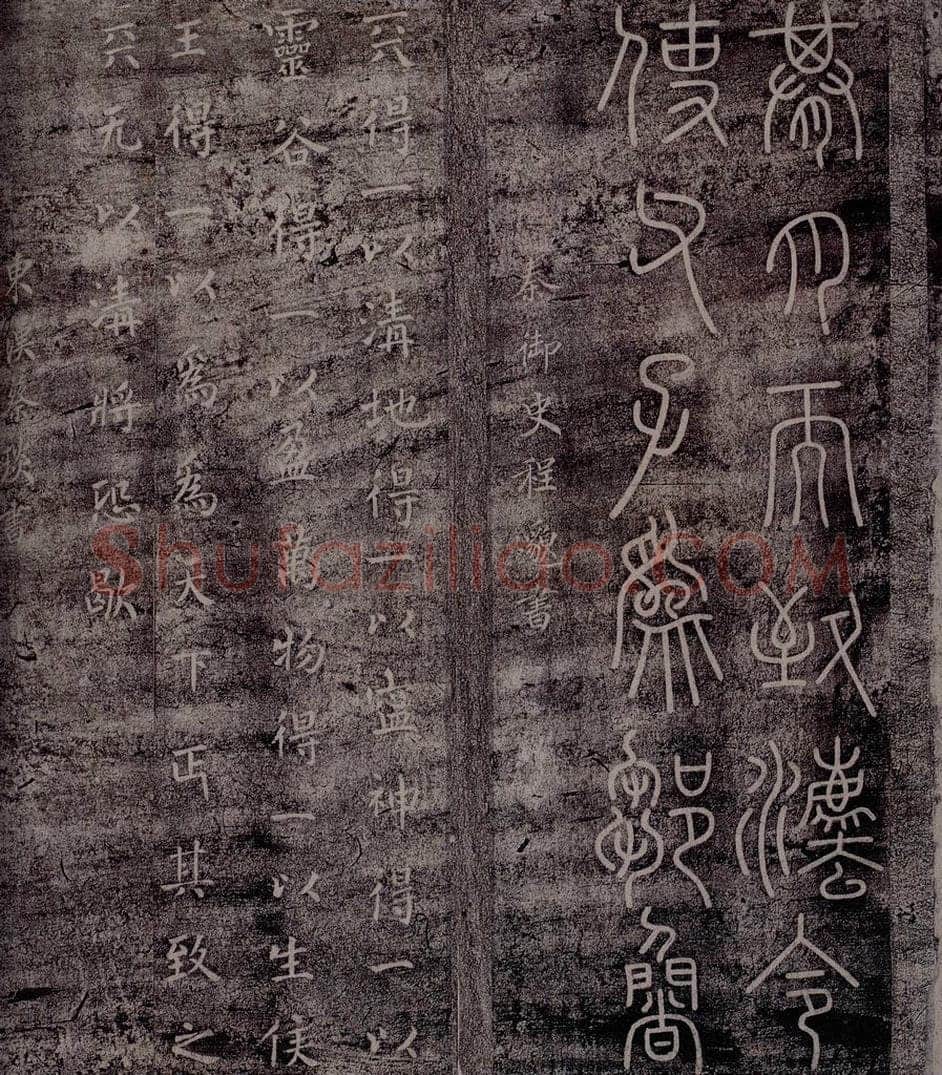 月而致灋令
使父子
秦御史程邈書
天得一以清地得一以寧神得一以
靈谷得一以盈萬物得一以生侯
王得一以為為天下正其致之
天无以清將恐
Shufaziliao.COM